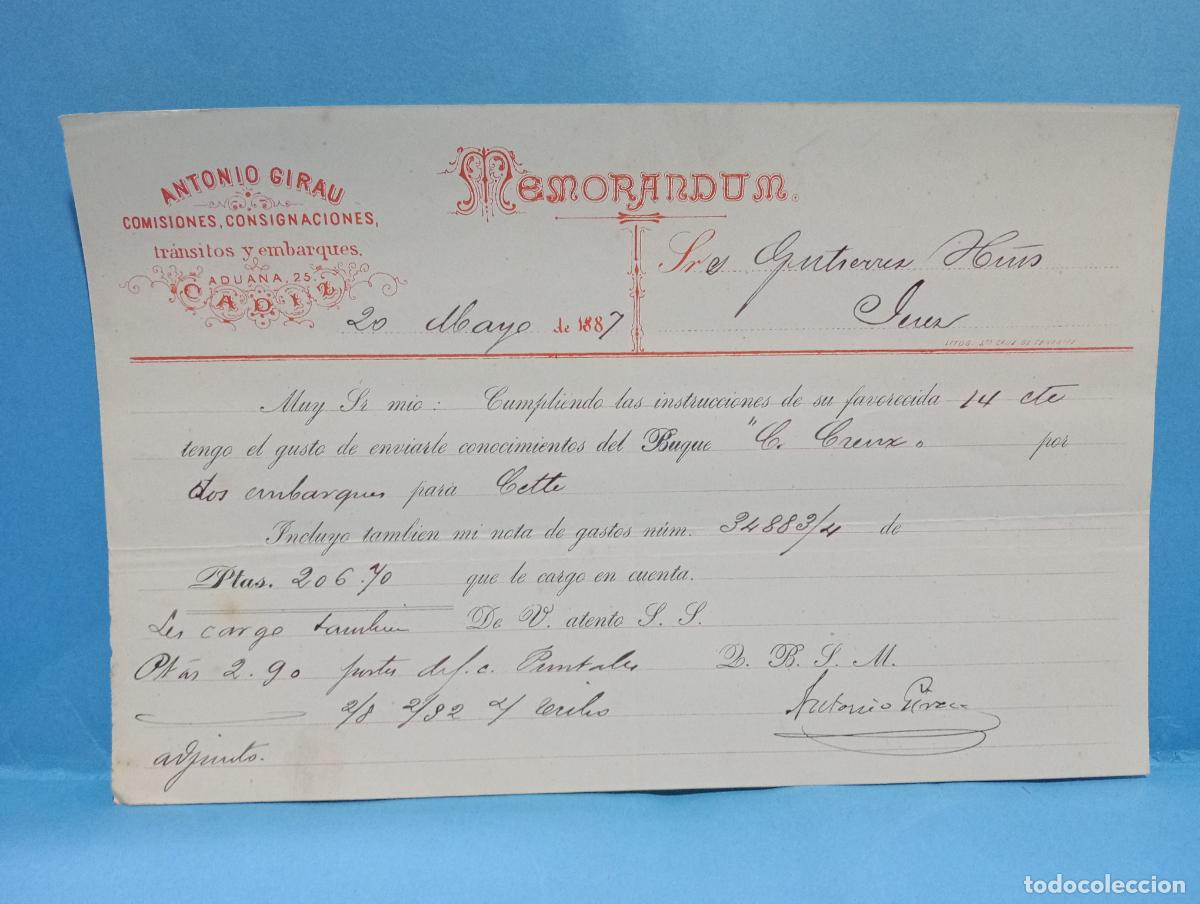 ANTONIO GIRAU
COMISIONES, CONSIGNACIONES,
tránsitos y embarques.
ADUANA, 25.
CADIZ
MEMORANDUM.
20 Mayo de 1887
Sres Gutierrez Hnos
Jerez
Muy Sr mio: Cumpliendo las instrucciones de su favorecida 14 cte
tengo el gusto de enviarle conocimientos del Buque "C. Creux" por
dos embarques para Cette
Incluyo tambien mi nota de gastos núm. 34883/4 de
Ptas. 206.70 que le cargo en cuenta.
Les cargo tambien De V. atento S. S.
Ptas 2.90 portes del f. c. Puntales Q. B. S. M.
2/8 2/82
Antonio Girau
adjunto.
todocoleccion